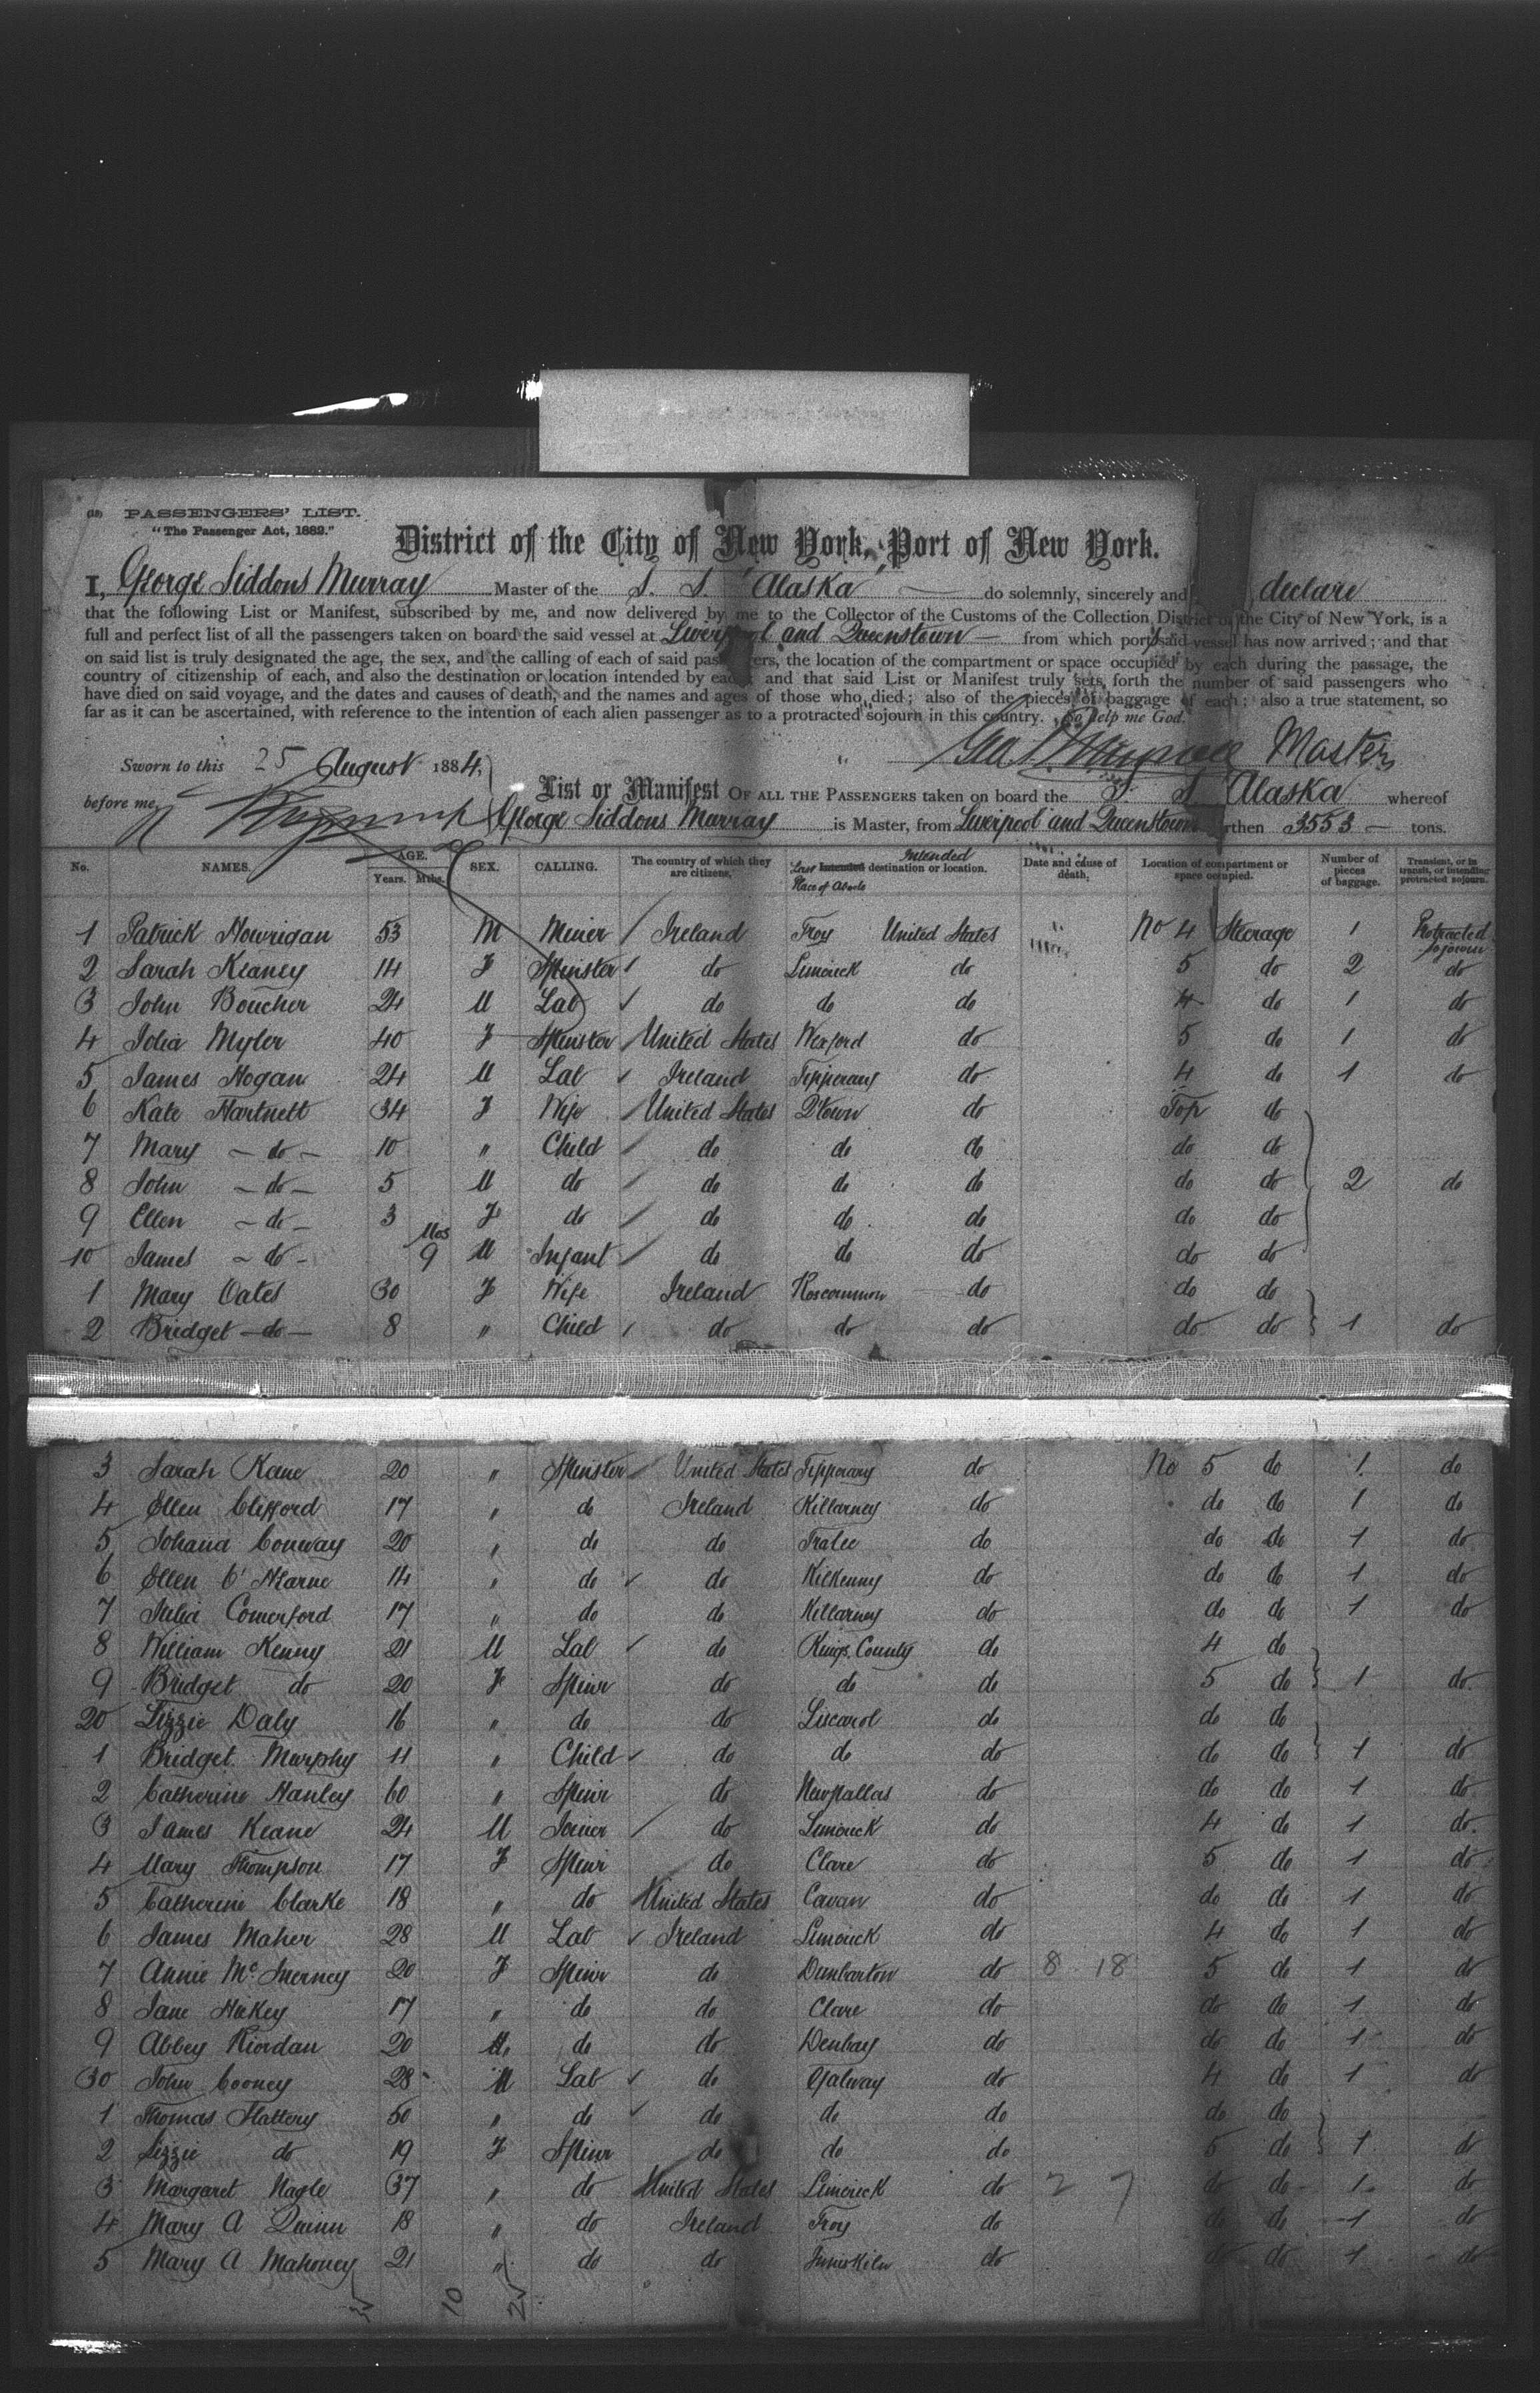 (18) PASSENGERS' LIST.
"The Passenger Act, 1882."
District of the City of New York, Port of New York.
I, George Siddons Murray Master of the S. S. "Alaska" do solemnly, sincerely and declare
that the following List or Manifest, subscribed by me, and now delivered by me to the Collector of the Customs of the Collection District of the City of New York, is a
full and perfect list of all the passengers taken on board the said vessel at Liverpool and Queenstown — from which ports said vessel has now arrived; and that
on said list is truly designated the age, the sex, and the calling of each of said passengers, the location of the compartment or space occupied by each during the passage, the
country of citizenship of each, and also the destination or location intended by each; and that said List or Manifest truly sets forth the number of said passengers who
have died on said voyage, and the dates and causes of death, and the names and ages of those who died; also of the pieces of baggage of each; also a true statement, so
far as it can be ascertained, with reference to the intention of each alien passenger as to a protracted sojourn in this country. So help me God.
Sworn to this 25 August 1884, Master
before me,
List or Manifest OF ALL THE PASSENGERS taken on board the S. S. Alaska whereof
George Siddons Murray is Master, from Liverpool and Queenstown burthen 3553 — tons.
No. NAMES. AGE. Years. Mths. SEX. CALLING. The country of which they are citizens. Last Place of Abode Intended Intended destination or location. Date and cause of death. Location of compartment or space occupied. Number of pieces of baggage. Transient, or in transit, or intending protracted sojourn.
1 Patrick Howrigan 53 M Miner Ireland Troy United States No 4 Steerage 1 Protracted sojourn
2 Sarah Keaney 14 F Spinster do Limerick do 5 do 2 do
3 John Boucher 24 M Lab do do do 4 do 1 do
4 Julia Myler 40 F Spinster United States Wexford do 5 do 1 do
5 James Hogan 24 M Lab Ireland Tipperary do 4 do 1 do
6 Kate Hartnett 34 F Wife United States Qtown do Top do
7 Mary — do — 10 " Child do do do do do
8 John — do — 5 M do do do do do do 2 do
9 Ellen — do — 3 F do do do do do do
10 James — do — Mos 9 M Infant do do do do do
1 Mary Oates 30 F Wife Ireland Roscommon do do do
2 Bridget — do — 8 " Child do do do do do 1 do
3 Sarah Kane 20 " Spinster United States Tipperary do No 5 do 1 do
4 Ellen Clifford 17 " do Ireland Killarney do do do 1 do
5 Johana Conway 20 " do do Tralee do do do 1 do
6 Ellen O'Hearne 14 " do do Kilkenny do do do 1 do
7 Julia Comerford 17 " do do Killarney do do do 1 do
8 William Kenny 21 M Lab do Kings County do 4 do
9 Bridget do 20 F Spinr do do do 5 do 1 do
20 Lizzie Daly 16 " do do Liscarol do do do
1 Bridget Murphy 11 " Child do do do do do 1 do
2 Catherine Hanley 60 " Spinr do Newpallas do do do 1 do
3 James Keane 24 M Joiner do Limerick do 4 do 1 do
4 Mary Thompson 17 F Spinr do Clare do 5 do 1 do
5 Catherine Clarke 18 " do United States Cavan do do do 1 do
6 James Maher 28 M Lab Ireland Limerick do 4 do 1 do
7 Annie McInerney 20 F Spinr do Dunbarton do 8 18 5 do 1 do
8 Jane Hickey 17 " do do Clare do do do 1 do
9 Abbey Riordan 20 do do do do do 1 do
30 John Cooney 28 M Lab do Galway do 4 do 1 do
1 Thomas Flattery 50 " do do do do do do
2 Lizzie do 19 F Spinr do do do 5 do 1 do
3 Margaret Nagle 37 " do United States Limerick do 2 7 do do 1 do
4 Mary A Quinn 18 " do Ireland Troy do do do 1 do
5 Mary A Mahoney 21 " do do do do do 1 do
10